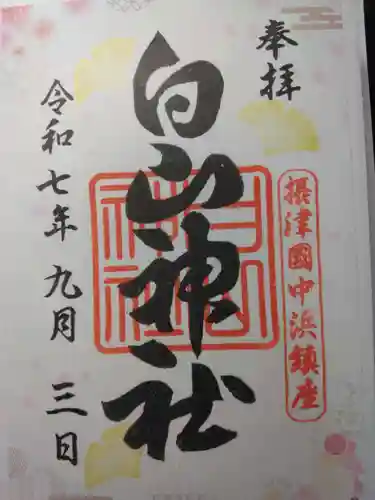 奉拝
摂津國中浜鎮座
白山神社
白山神社
令和七年九月三日